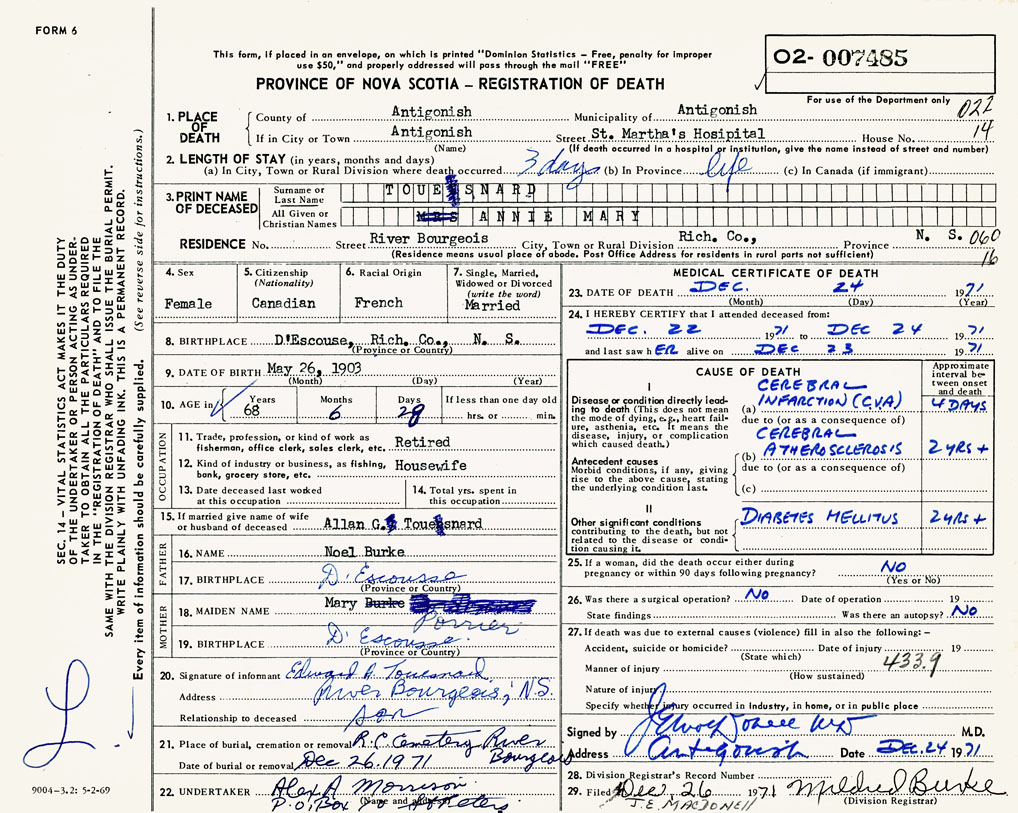 FORM 6
This form, if placed in an envelope, on which is printed "Dominion Statistics – Free, penalty for improper
use $50," and properly addressed will pass through the mail "FREE"
PROVINCE OF NOVA SCOTIA – REGISTRATION OF DEATH
02- 007485
For use of the Department only
022
14
1. PLACE OF DEATH
County of Antigonish Municipality of Antigonish
If in City or Town Antigonish Street St. Martha's Hosipital House No.
(Name) (If death occurred in a hospital or institution, give the name instead of street and number)
2. LENGTH OF STAY (in years, months and days)
(a) In City, Town or Rural Division where death occurred 3 days (b) In Province life (c) In Canada (if immigrant)
3. PRINT NAME OF DECEASED
Surname or Last Name TOUESNARD
All Given or Christian Names MRS ANNIE MARY
RESIDENCE No. Street River Bourgeois City, Town or Rural Division Rich. Co., Province N. S. 060
(Residence means usual place of abode. Post Office Address for residents in rural parts not sufficient)
16
4. Sex
Female
5. Citizenship
(Nationality)
Canadian
6. Racial Origin
French
7. Single, Married,
Widowed or Divorced
(write the word)
Married
8. BIRTHPLACE D'Escouse, Rich. Co., N. S.
(Province or Country)
9. DATE OF BIRTH May 26, 1903
(Month) (Day) (Year)
10. AGE in
Years Months Days If less than one day old
68 6 28 hrs. or min.
OCCUPATION
11. Trade, profession, or kind of work as
fisherman, office clerk, sales clerk, etc. Retired
12. Kind of industry or business, as fishing,
bank, grocery store, etc. Housewife
13. Date deceased last worked
at this occupation
14. Total yrs. spent in
this occupation
15. If married give name of wife
or husband of deceased Allan G. Touesnard
FATHER
16. NAME Noel Burke
17. BIRTHPLACE D'Escousse
(Province or Country)
MOTHER
18. MAIDEN NAME Mary Burke
Porrier
19. BIRTHPLACE D'Escousse
(Province or Country)
20. Signature of informant Edward A Touesnard
Address River Bourgeois, N.S.
Relationship to deceased son
21. Place of burial, cremation or removal R.C. Cemetery River
Bourgeois
Date of burial or removal Dec 26. 1971
22. UNDERTAKER Alex A Morrison
P.O. Box St Peters
(Name and address)
MEDICAL CERTIFICATE OF DEATH
23. DATE OF DEATH DEC. 24 1971
(Month) (Day) (Year)
24. I HEREBY CERTIFY that I attended deceased from:
DEC. 22 1971 to DEC 24 1971
and last saw hER alive on DEC 23 1971
CAUSE OF DEATH
Approximate
interval be-
tween onset
and death
I
Disease or condition directly lead-
ing to death (This does not mean
the mode of dying, e.g., heart fail-
ure, asthenia, etc. It means the
disease, injury, or complication
which caused death.)
CEREBRAL
(a) INFARCTION (C.V.A) 4 DAYS
due to (or as a consequence of)
CEREBRAL
(b) ATHEROSCLEROSIS 2 YRS +
Antecedent causes
Morbid conditions, if any, giving
rise to the above cause, stating
the underlying condition last.
due to (or as a consequence of)
(c)
II
Other significant conditions
contributing to the death, but not
related to the disease or condi-
tion causing it.
DIABETES MELLITUS 2 YRS +
25. If a woman, did the death occur either during
pregnancy or within 90 days following pregnancy? NO
(Yes or No)
26. Was there a surgical operation? NO Date of operation 19
State findings Was there an autopsy? NO
27. If death was due to external causes (violence) fill in also the following: –
Accident, suicide or homicide? Date of injury 19
(State which)
433.9
Manner of injury
(How sustained)
Nature of injury
Specify whether injury occurred in Industry, in home, or in public place
Signed by M.D.
Address Antigonish Date DEC. 24 1971
28. Division Registrar's Record Number
29. Filed Dec, 26 1971 Mildred Burke
J.E. MACDONELL (Division Registrar)
SEC. 14 – VITAL STATISTICS ACT MAKES IT THE DUTY
OF THE UNDERTAKER OR PERSON ACTING AS UNDER-
TAKER TO OBTAIN ALL THE PARTICULARS REQUIRED
IN THE "REGISTRATION OF DEATH" AND TO FILE THE
SAME WITH THE DIVISION REGISTRAR WHO SHALL ISSUE THE BURIAL PERMIT.
WRITE PLAINLY WITH UNFADING INK. THIS IS A PERMANENT RECORD.
Every item of information should be carefully supplied. (See reverse side for instructions.)
9004-3.2: 5-2-69